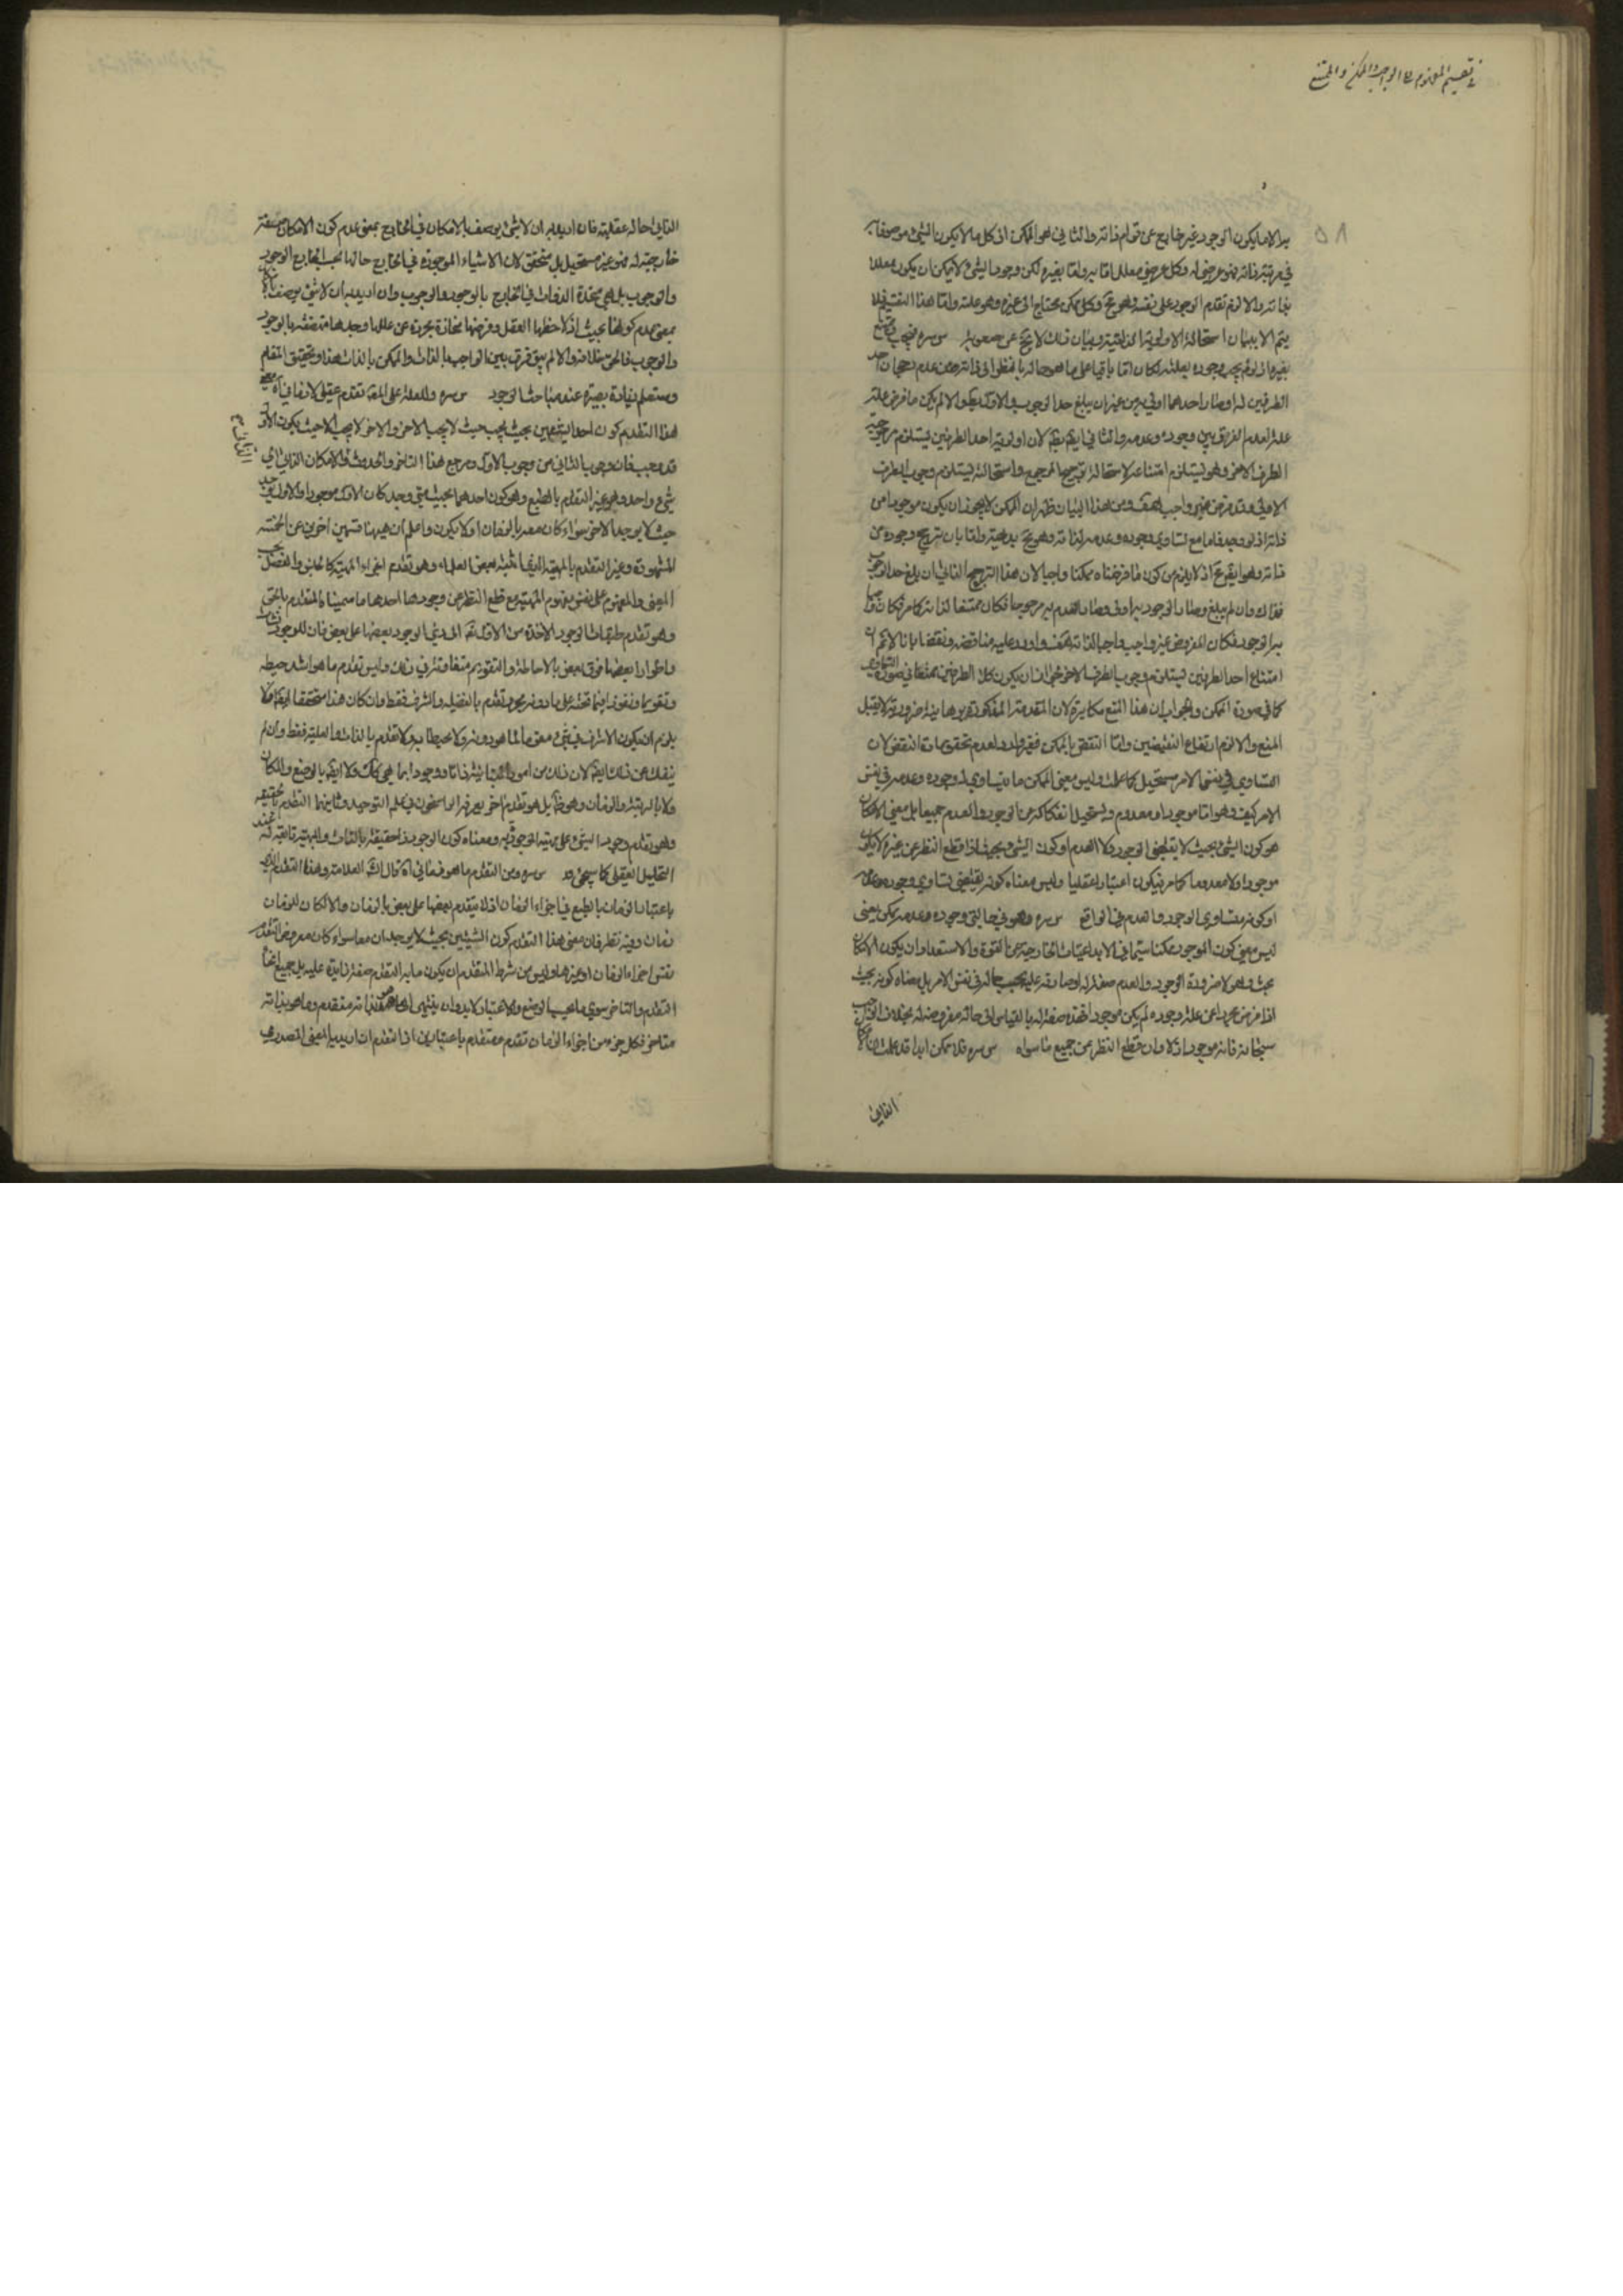 في تقسيم المفهوم الى الواجب والممكن والممتنع
٥٨
يراد ما يكون الوجود غير خارج عن قوام ذاته والثاني هو الممكن اذ كل ما لا يكون الشيء موصوفا به
في مرتبة ذاته فهو عرضي له وكل عرضي معلل اما به واما بغيره لكن وجود الشيء لا يمكن ان يكون معللا
بذاته والا لزم تقدم الوجود على نفسه وهو مح وكل ممكن يحتاج الى غيره وهو علته واما هذا التقسيم فلا
يتم الا ببيان استحالة الاولوية الذاتية وبيان ذلك لا يخ عن صعوبة س سره فيجب ويمتنع
بغيرها اذ لو لم يجب وجوده بعلته لكان اما باقيا على ما هو حاله بالنظر الى ذاته من عدم رجحان احد
الطرفين له او صار احدهما اولى به من غير ان يبلغ حد الوجوب والاول يبطل والا لم يكن ما فرض علة
علة لعدم الفرق بين وجوده وعدمه والثاني ايضا يبطل لان اولوية احد الطرفين يستلزم مرجوحية
الطرف الآخر وهو يستلزم امتناعه لاستحالة ترجيح المرجوح واستحالته يستلزم وجوب الطرف
الاولى وقد فرض غير واجب هف ومن هذا البيان ظهر ان الممكن لا يجوز ان يكون موجودا من
ذاته اذ لو وجد فاما مع تساوي وجوده وعدمه لذاته وهو مح بديهة واما بان يترجح وجوده من
ذاته وهو ايضا مح اذ لا يلزم من كون ما فرضناه ممكنا واجبا لان هذا الترجيح الثاني ان بلغ حد الوجوب
فذاك وان لم يبلغ وصار الوجود به اولى وصار العدم به مرجوحا فكان ممتنعا لذاته كما مر فكان واجبا
به الوجود فكان المفروض غير واجب واجبا لذاته هف واورد عليه مناقضة ونقضا بانا لا نم ان
امتناع احد الطرفين يستلزم وجوب الطرف الآخر لجواز ان يكون كلا الطرفين ممتنعا في صورة التساوي
كما في صورة الممكن والجواب ان هذا المنع مكابرة لان المقدمة المذكورة بديهية ضرورية لا يقبل
المنع والا لزم ارتفاع النقيضين واما النقض بالممكن فغير وارد لعدم تحقق مادة النقض لان
التساوي في نفس الامر مستحيل كما علمت وليس معنى الممكن ما يتساوي وجوده وعدمه في نفس
الامر كيف وهو اما موجود او معدوم ويستحيل انفكاكه عن الوجود والعدم جميعا بل معنى الامكان
هو كون الشيء بحيث لا يقتضي الوجود ولا العدم او كون الشيء بحيث اذا قطع النظر عن غيره لا يكون
موجودا ولا معدوما كما مر فيكون اعتبارا عقليا وليس معناه كونه يقتضي تساوي وجوده وعدمه
او كونه متساوي الوجود والعدم في الواقع س سره وهو في حالتي وجوده وعدمه ممكن يعني
ليس معنى كون الموجود ممكنا سيما في الابداعيات الخارجة عن القوة والاستعداد ان يكون الامكان
بحث وهو لا ضرورة الوجود والعدم صفة له او صادقة عليه بحسب حاله في نفس الامر بل معناه كونه بحيث
اذا فرض مجردا عن علة وجوده لم يكن موجودا فهذه صفة له بالقياس الى حالة مفروضة له بخلاف الواجب
سبحانه فانه موجود ازلا وان قطع النظر عن جميع ما سواه س سره فلا ممكن ابدا قد علمت ان الامكان
الثاني
الثاني حالة عقلية فان اريد به ان لا شيء يوصف بالامكان في الخارج بمعنى عدم كون الامكان صفة
خارجية له فهو غير مستحيل بل متحقق لان الاشياء الموجودة في الخارج حالها بحسب الخارج الوجود
والوجوب بل هي متحدة الذوات في الخارج بالوجود والوجوب وان اريد به ان لا شيء يوصف بالامكان
بمعنى عدم كونها بحيث اذا لاحظها العقل وفرضها منحازة مجردة عن عللها وجدها متصفة بالوجود
والوجوب فالحق خلافه والا لم يبق فرق بين الواجب بالذات والممكن بالذات هذا وتحقيق المقام
وستعلم زيادة بصيرة عند مباحث الوجود س سره وللعلة على المعلول تقدم عقلي لا زماني آه معنى
هذا التقدم كون احد الشيئين بحيث يجب حيث لا يجب الاخر والاخر لا يجب الا حيث يكون الاول
قد وجب فان وجوب الثاني من وجوب الاول ومرجع هذا التاخر والحدوث الى الامكان الذاتي الى
شيء واحد وهو غير التقدم بالطبع وهو كون احدهما بحيث متى وجد كان الاول موجودا والاول يوجد
حيث لا يوجد الاخر سواء كان معه بالزمان او لا يكون واعلم ان ههنا قسمين اخرين عن الخمسة
المشهورة وغير التقدم بالمهية الذي اثبته بعض العلماء وهو تقدم اجزاء المهية كالجنس والفصل بحسب
المعنى والمفهوم على نفس مفهوم المهية مع قطع النظر عن وجودها احدهما ما سميناه المتقدم بالحق
وهو تقدم طبقات الوجود الآخذة من الاول تعالى الى ادنى الوجود بعضها على بعض فان للوجود شئونات
واطوارا بعضها فوق بعض بالاحاطة والتقويم متفاوتة في ذلك وليس تقدم ما هو اشد حيطة
وتقويما ونفوذا فيما تحته على ما دونه بمجرد تقدم بالفضيلة والشرف فقط وان كان هذا متحققا ايضا اذ لا
يلزم ان يكون الاشرف في شيء مقوما لما هو دونه ولا محيطا به ولا تقدم بالذات والعلية فقط وان لم
ينفك عن ذلك ايضا لان ذلك بين امور متباينة ذاتا ووجودا بما هي كذلك ولا ايضا بالوضع والمكان
ولا بالرتبة والزمان وهو ظ بل هو تقدم اخر يعرفه الراسخون في علم التوحيد وثانيهما التقدم بالحقيقة
وهو تقدم وجود الشيء على مهيته الموجودة به ومعناه كون الوجود ذا حقيقة بالذات والمهية تابعة له عند
التحليل العقلي كما سيجيء س سره ومن التقدم ما هو زماني آه قال العلامة وهذا التقدم الذي
باعتبار الزمان بالطبع في اجزاء الزمان اذ لا يتقدم بعضها على بعض بالزمان والا لكان للزمان
زمان وفيه نظر فان معنى هذا التقدم كون الشيئين بحيث لا يوجدان معا سواء كان معروض التقدم
نفس اجزاء الزمان او غيرها وليس من شرط المتقدم ان يكون ما به التقدم صفة زايدة عليه بل جميع انحاء
التقدم والتاخر سوي ما بحسب الوضع والاعتبار لابد وان ينتهي الى ما هو بذاته متقدم وما هو بذاته
متاخر فكل جزء من اجزاء الزمان تقدم ومتقدم باعتبارين اذا التقدم ان اريد به المعنى المصدري